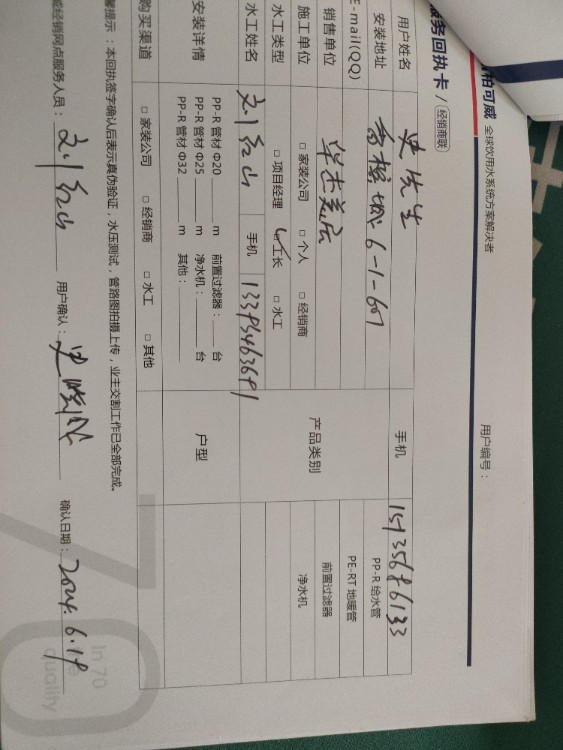 柏可威 全球饮用水系统方案解决者
服务回执卡 / 经销商联
用户编号：
用户姓名 史先生 手机 15735686133
安装地址 6-1-601 PP-R 给水管
E-mail(QQ) PE-RT 地暖管
销售单位 华杰美居 产品类别 前置过滤器
施工单位 □ 家装公司 □ 个人 □ 经销商 净水机
水工类型 □ 项目经理 工长 □ 水工
水工姓名 刘红山 手机 13393463691
安装详情 PP-R 管材 Φ20 m 前置过滤器： 台 户型
PP-R 管材 Φ25 m 净水机： 台
PP-R 管材 Φ32 m 其他：
购买渠道 □ 家装公司 □ 经销商 □ 水工 □ 其他
提示：本回执签字确认后表示真伪验证，水压测试，管路图拍摄上传，业主交割工作已全部完成。
威经销网点服务人员：刘红山 用户确认：史 确认日期：2024.6.19
In 70
quality